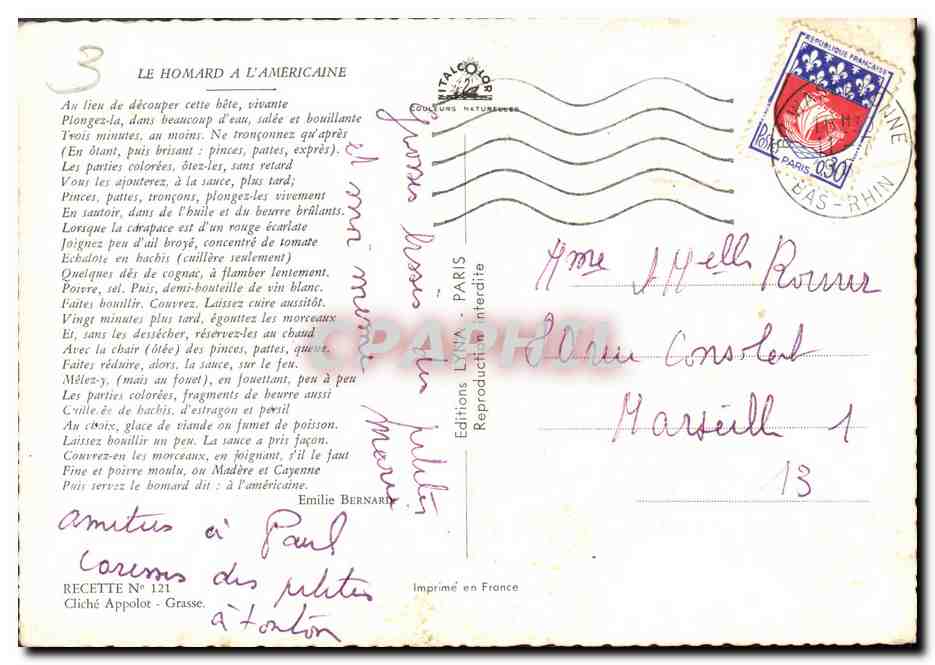 3
LE HOMARD A L'AMÉRICAINE
Au lieu de découper cette bête, vivante
Plongez-la, dans beaucoup d'eau, salée et bouillante
Trois minutes, au moins. Ne tronçonnez qu'après
(En ôtant, puis brisant : pinces, pattes, exprès).
Les parties colorées, ôtez-les, sans retard
Vous les ajouterez, à la sauce, plus tard;
Pinces, pattes, tronçons, plongez-les vivement
En sautoir, dans de l'huile et du beurre brûlants.
Lorsque la carapace est d'un rouge écarlate
Joignez peu d'ail broyé, concentré de tomate
Echalote en hachis (cuillère seulement)
Quelques dés de cognac, à flamber lentement.
Poivre, sel. Puis, demi-bouteille de vin blanc.
Faites bouillir. Couvrez. Laissez cuire aussitôt.
Vingt minutes plus tard, égouttez les morceaux
Et, sans les dessécher, réservez-les au chaud
Avec la chair (ôtée) des pinces, pattes, queue.
Faites réduire, alors, la sauce, sur le feu.
Mêlez-y, (mais au fouet), en fouettant, peu à peu
Les parties colorées, fragments de beurre aussi
Cuillerée de hachis, d'estragon et persil
Au choix, glace de viande ou fumet de poisson.
Laissez bouillir un peu. La sauce a pris façon.
Couvrez-en les morceaux, en joignant, s'il le faut
Fine et poivre moulu, ou Madère et Cayenne
Puis servez le homard dit : à l'américaine.
Emilie BERNARD
amitiés à Paul
Caresses des petites
à tonton
RECETTE N° 121
Cliché Appolot - Grasse.
Grosses bises des petites
et moi même
Marie
VITALCOLOR
COULEURS NATURELLES
Editions LYNA - PARIS
Reproduction interdite
Imprimé en France
REPUBLIQUE FRANÇAISE
POSTES
PARIS 0,30
BAS-RHIN
Mme & Melle
20 rue Consolat
Marseille 1
13
CPAPHIL